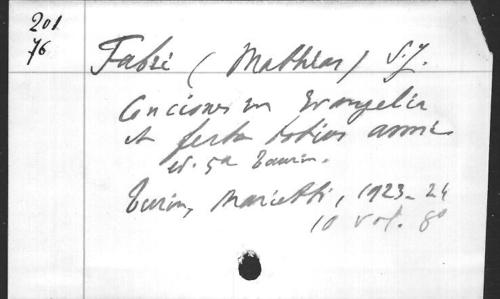 201
76
Fabri (Mathias) S.J.
Conciones in Evangelia
et festa totius anni
ed. 5a Taurin.
Turin, Marietti, 1923-24
10 vol. 8o